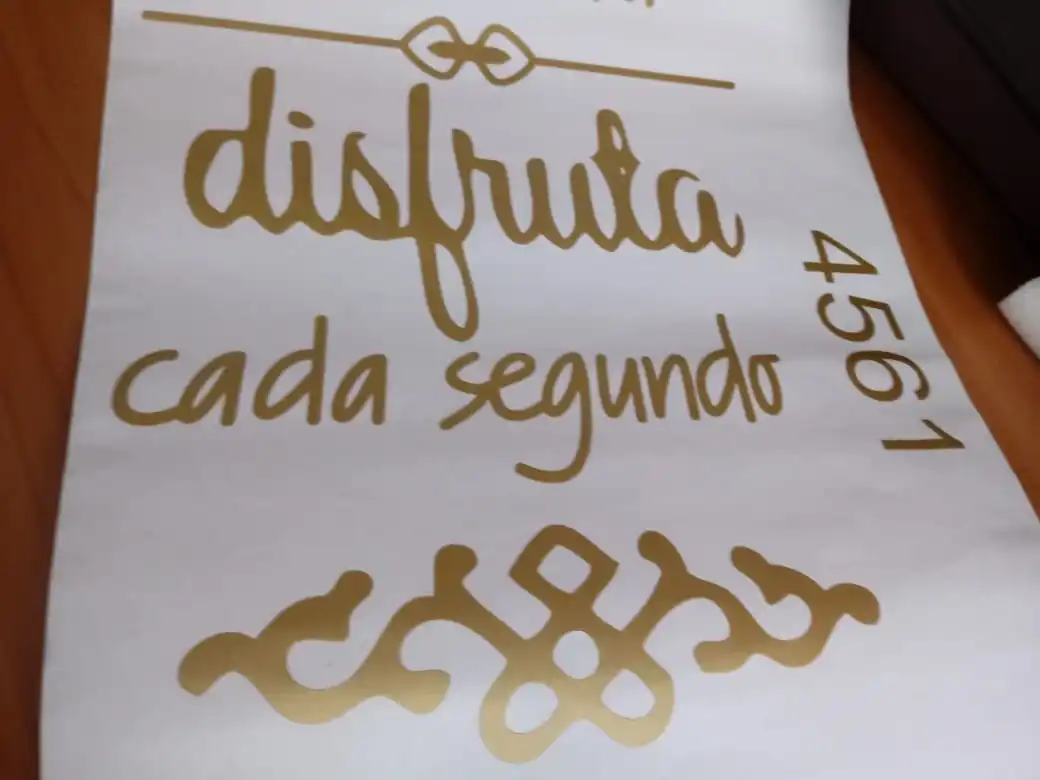 disfruta
cada segundo
4561